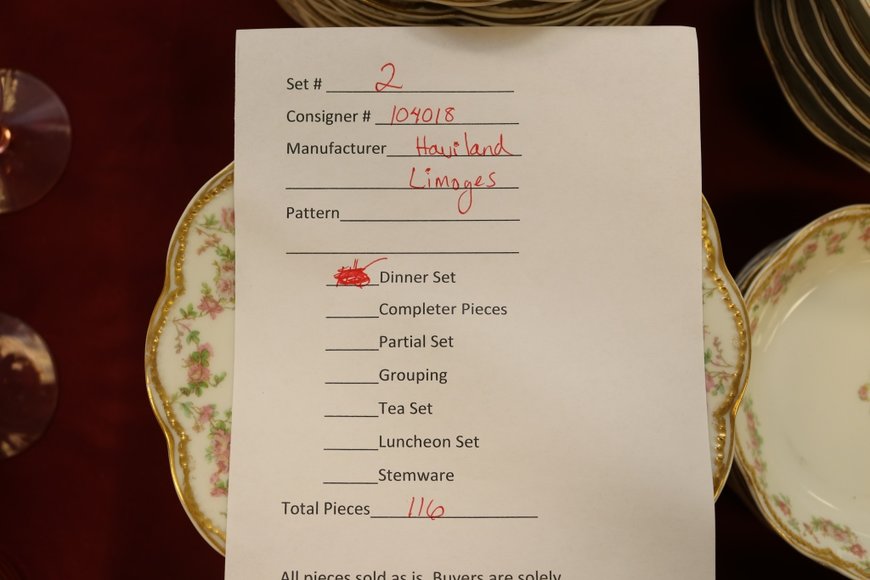 Set # 2
Consigner # 104018
Manufacturer Haviland
Limoges
Pattern
Dinner Set
Completer Pieces
Partial Set
Grouping
Tea Set
Luncheon Set
Stemware
Total Pieces 116
All pieces sold as is. Buyers are solely